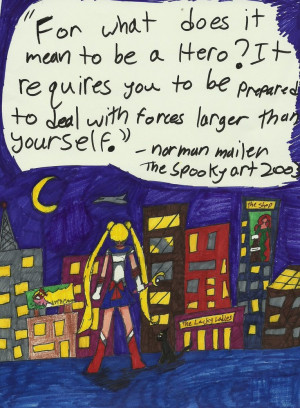 "For what does it
mean to be a Hero? It
requires you to be prepared
to deal with forces larger than
yourself."
-norman mailen
The Spooky art 2003
the Stop
The Lucky Ladies